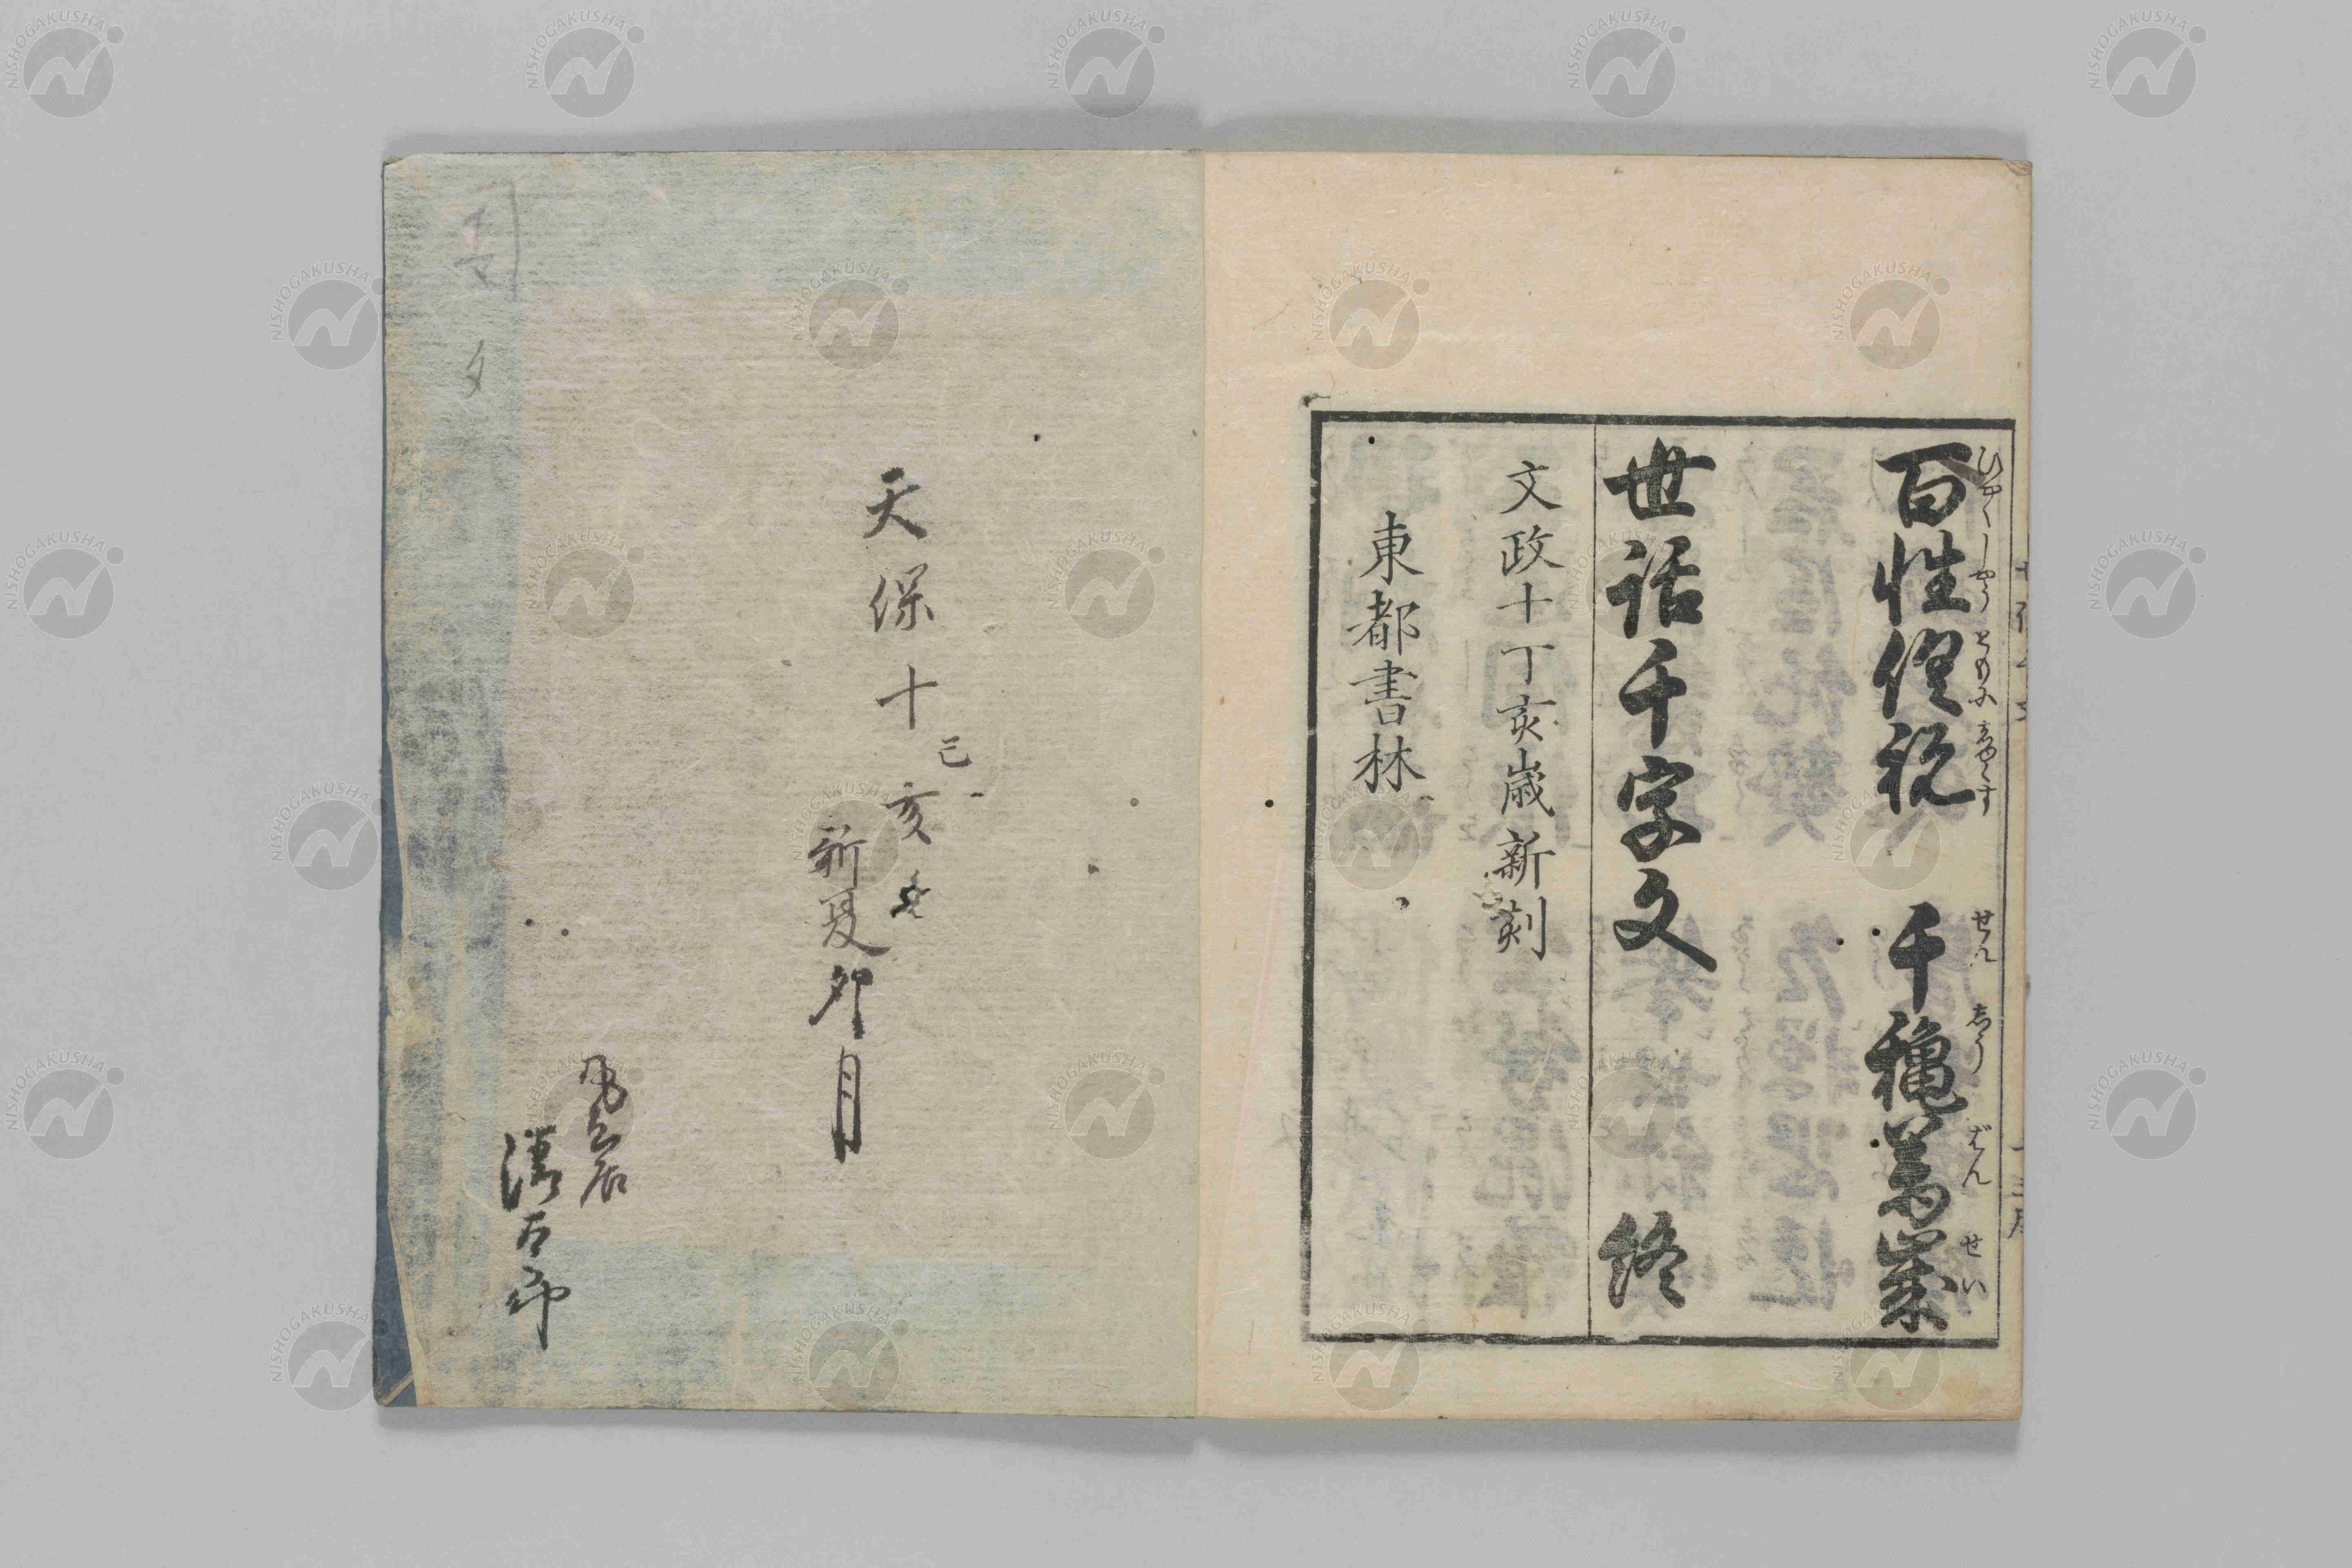 百性倶祝　千穐萬歳
ひやくしやう ともに しゆくす せん しう ばん せい
世話千字文　終
文政十丁亥歳新刻
東都書林
天保十己亥
新夏卯月
NISHOGAKUSHA